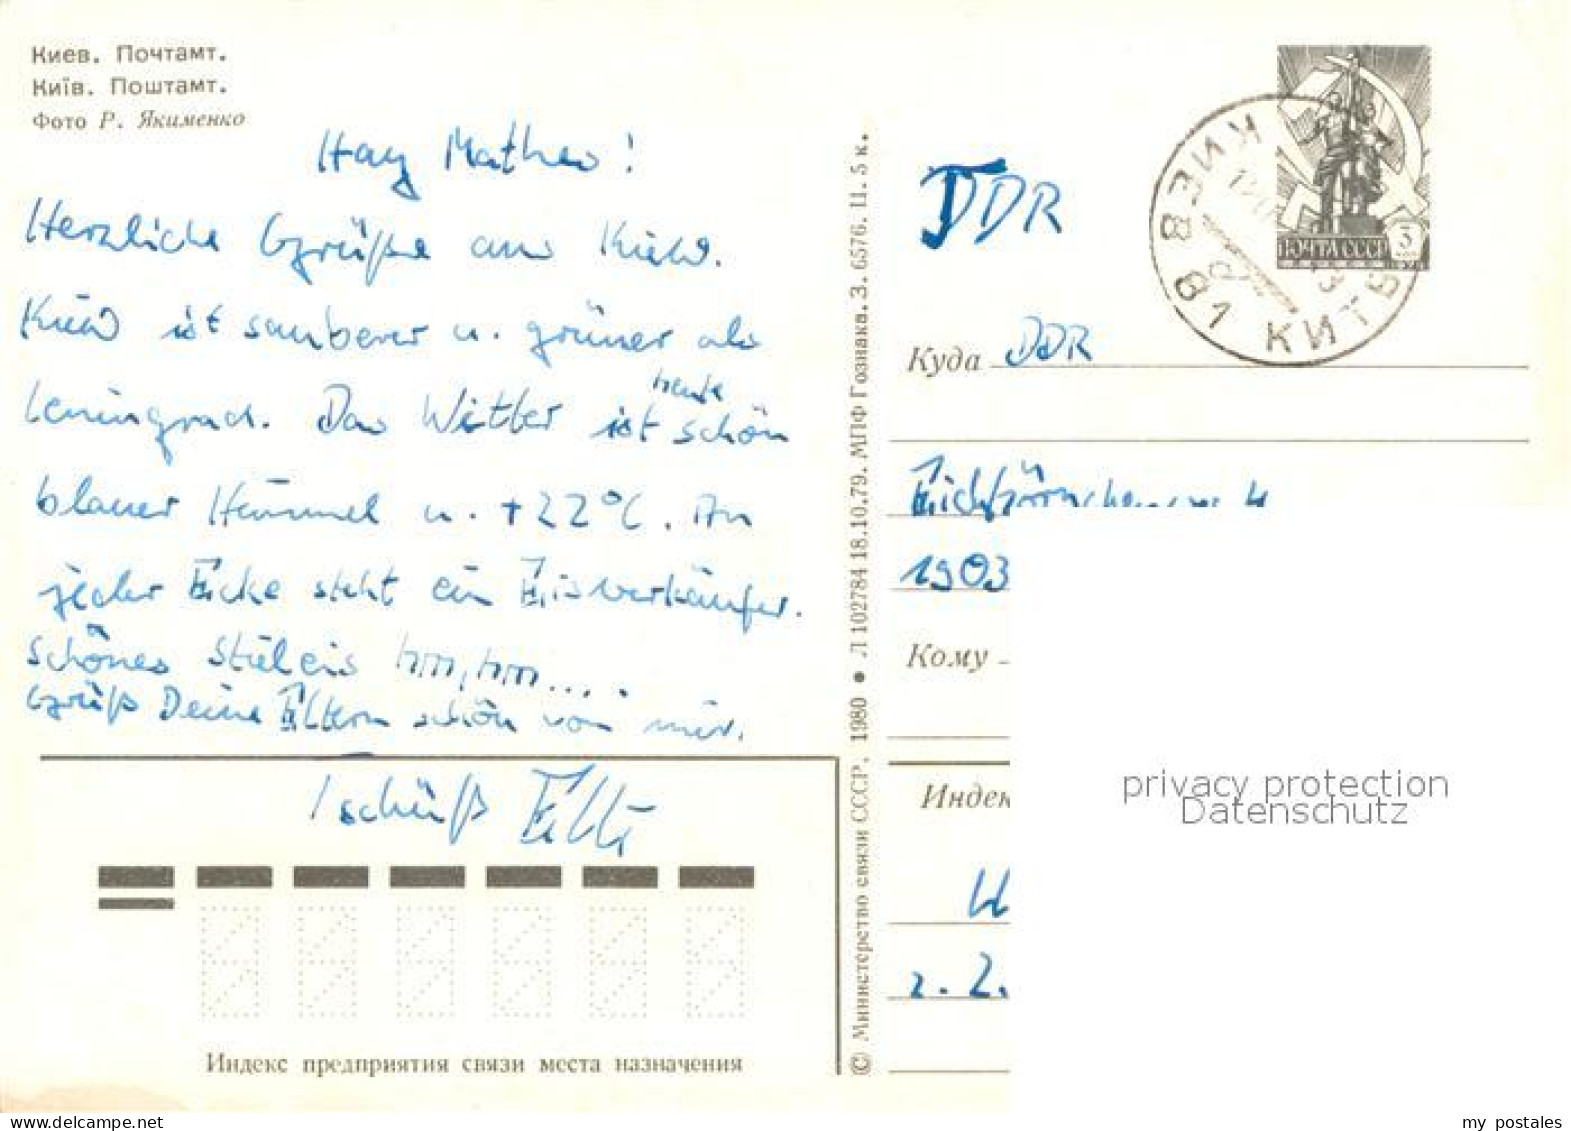 Киев. Почтамт.
Київ. Поштамт.
Фото Р. Якименко
Hay Matheo!
Herzliche Grüße aus Kiew.
Kiew ist sauberer u. grüner als
Leningrad. Das Wetter ist heute schön
blauer Himmel u. +22°C. An
jeder Ecke steht ein Eisverkäufer.
Schönes Stieleis hm, hm....
Grüß Deine Eltern schön von mir.
Tschüß
Индекс предприятия связи места назначения
© Министерство связи СССР. 1980 • Л 102784 18.10.79. МПФ Гознака. З. 6576. Ц. 5 к.
ПОЧТА СССР 3
DDR
Куда DDR
1903
Кому
Индек
z. Z.
privacy protection
Datenschutz
my postales